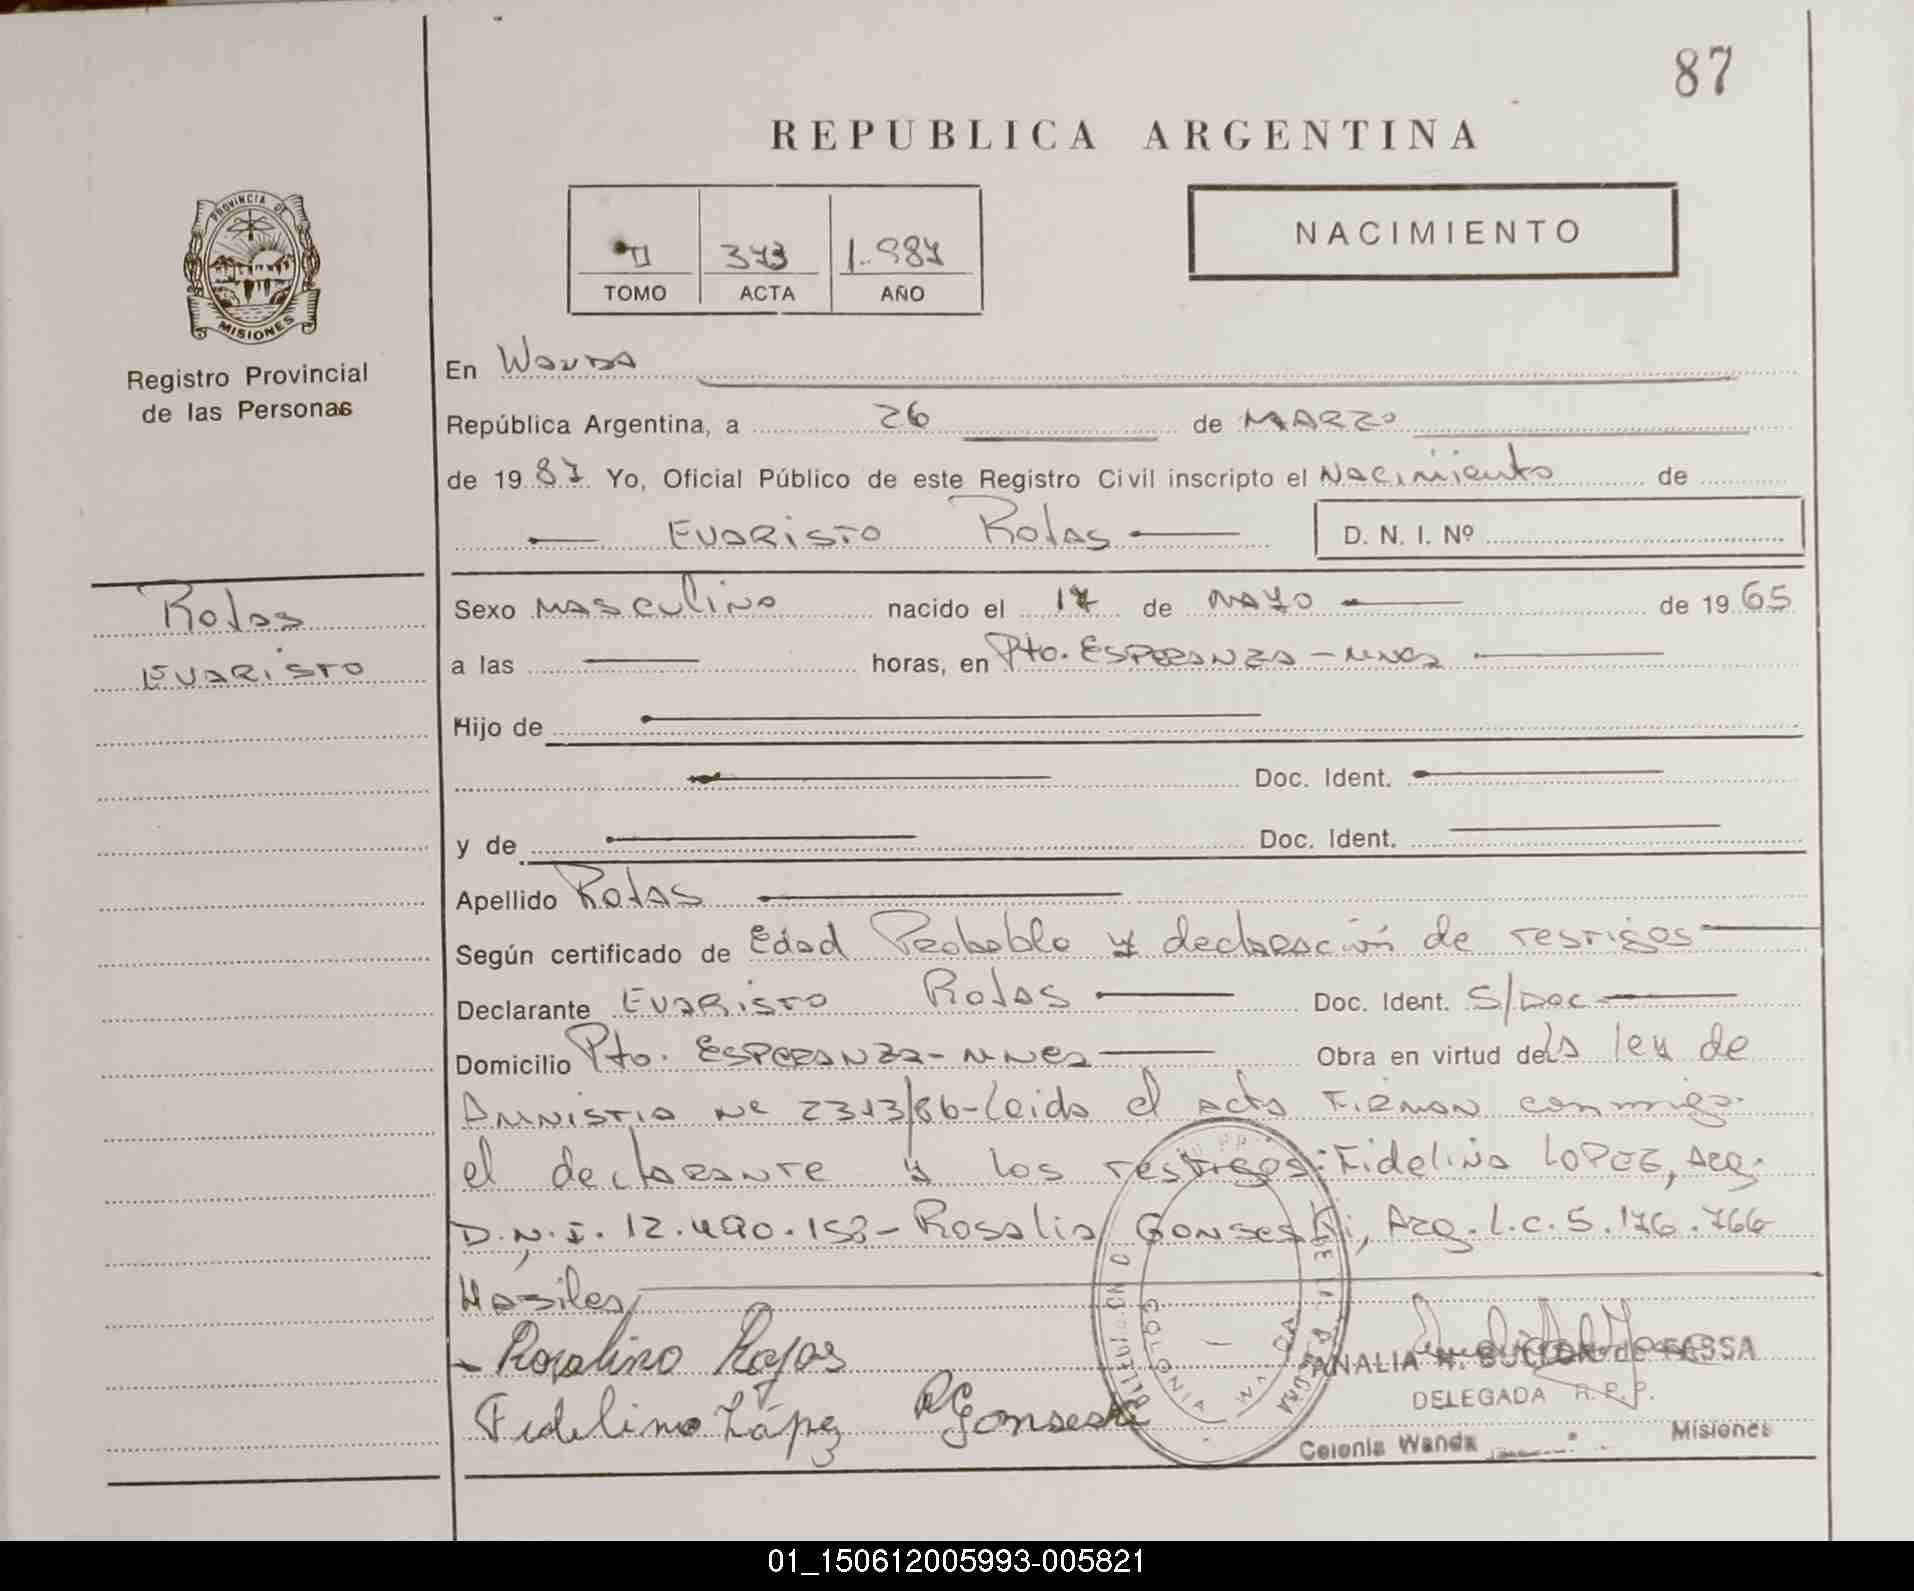 87
REPUBLICA ARGENTINA
373 1.987
TOMO ACTA AÑO
NACIMIENTO
PROVINCIA DE
MISIONES
Registro Provincial
de las Personas
En Wanda
República Argentina, a 26 de MARZO
de 1987 Yo, Oficial Público de este Registro Civil inscripto el Nacimiento de
EVARISTO Rojas D. N. I. Nº
Rojas
EVARISTO
Sexo MASCULINO nacido el 17 de MAYO de 1965
a las horas, en Pto. ESPERANZA - MNES
Hijo de
Doc. Ident.
y de Doc. Ident.
Apellido Rojas
Según certificado de Edad Probable y declaración de testigos
Declarante EVARISTO Rojas Doc. Ident. S/Doc
Domicilio Pto. ESPERANZA - MNES Obra en virtud de la ley de
AMNISTIA Nº 2313/86 - Leida el acta FIRMAN conmigo
el declarante y los testigos: Fidelino LOPEZ, Arg.
D.N.I. 12.490.153 - Rosalia Gonseski, Arg. L.C. 5.176.766
Hábiles
Rosalino Rojas
Fidelino López R Gonseski
ANALIA N. de FASSA
DELEGADA R. R. P.
Colonia Wanda Misiones
01_150612005993-005821